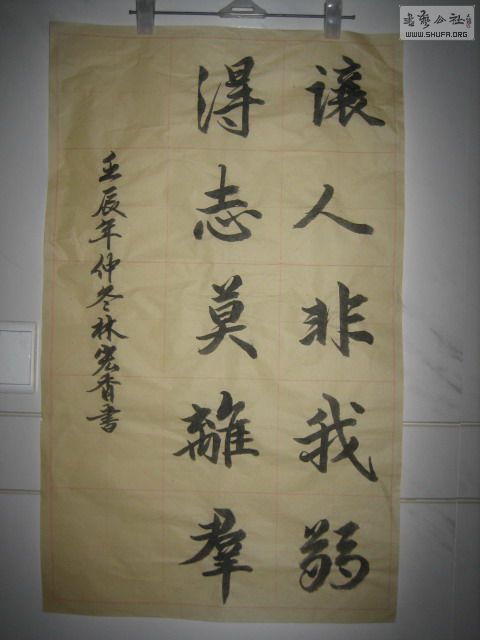 讓人非我弱
得志莫離羣
壬辰年仲冬林宏香書
書藝公社
WWW.SHUFA.ORG